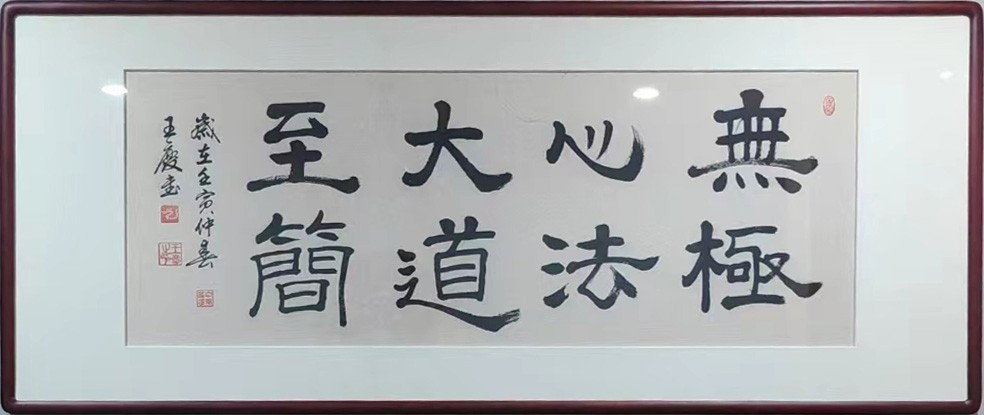 無極
心法
大道
至簡
歲在壬寅仲春
王慶書